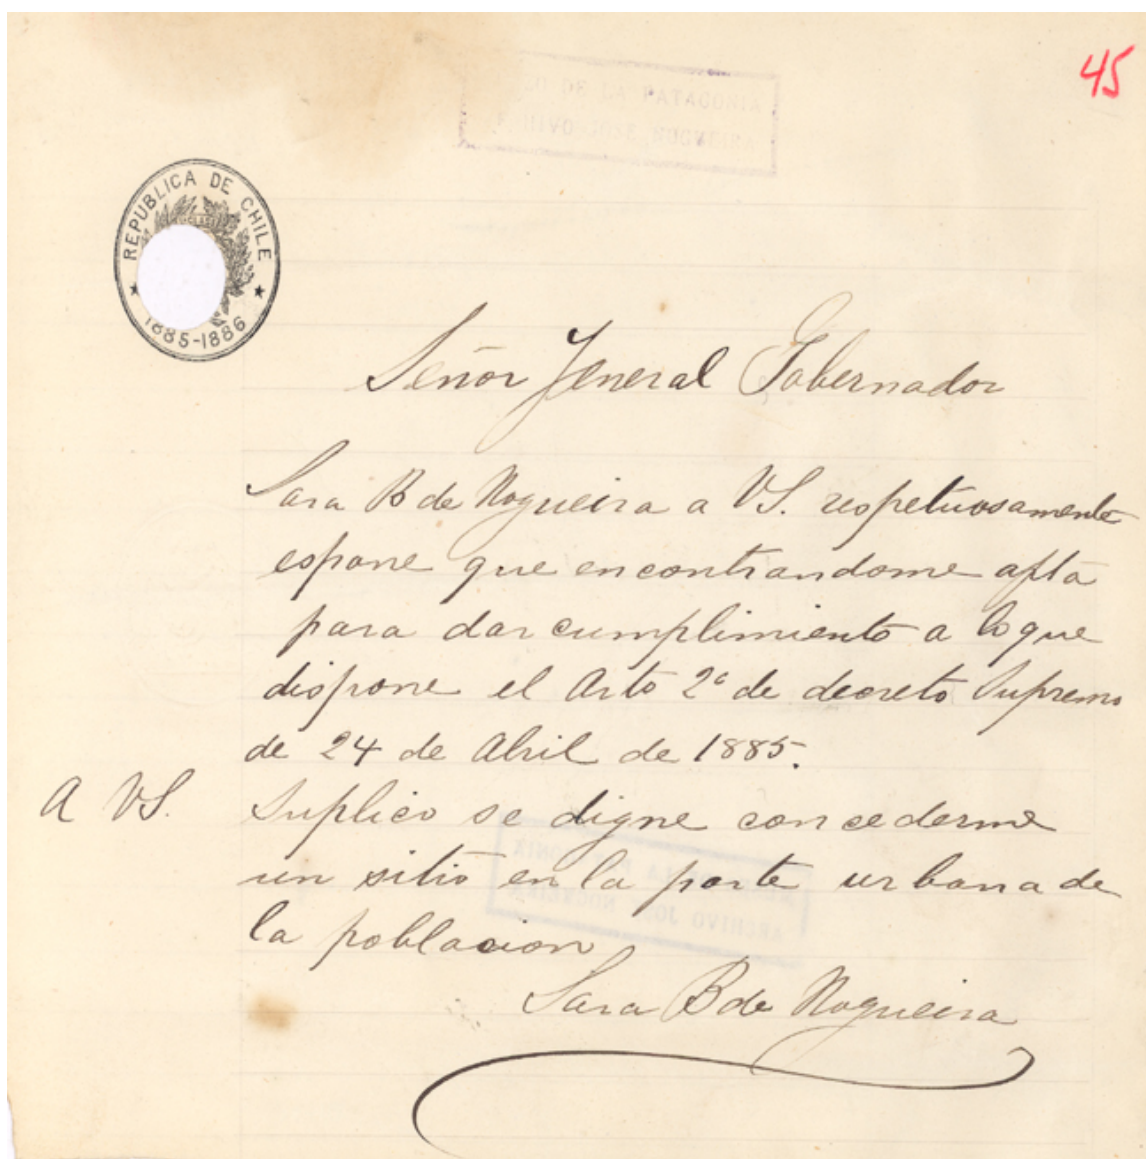 45
DE LA PATAGONIA
ARCHIVO JOSE NOGUEIRA
REPUBLICA DE CHILE
1885-1886
Señor Jeneral Gobernador
Sara B de Nogueira a VS. respetuosamente
espone que encontrandome apta
para dar cumplimiento a lo que
dispone el Arto 2º de decreto Supremo
de 24 de Abril de 1885.
A VS. Suplico se digne concederme
un sitio en la parte urbana de
la poblacion
Sara B de Nogueira